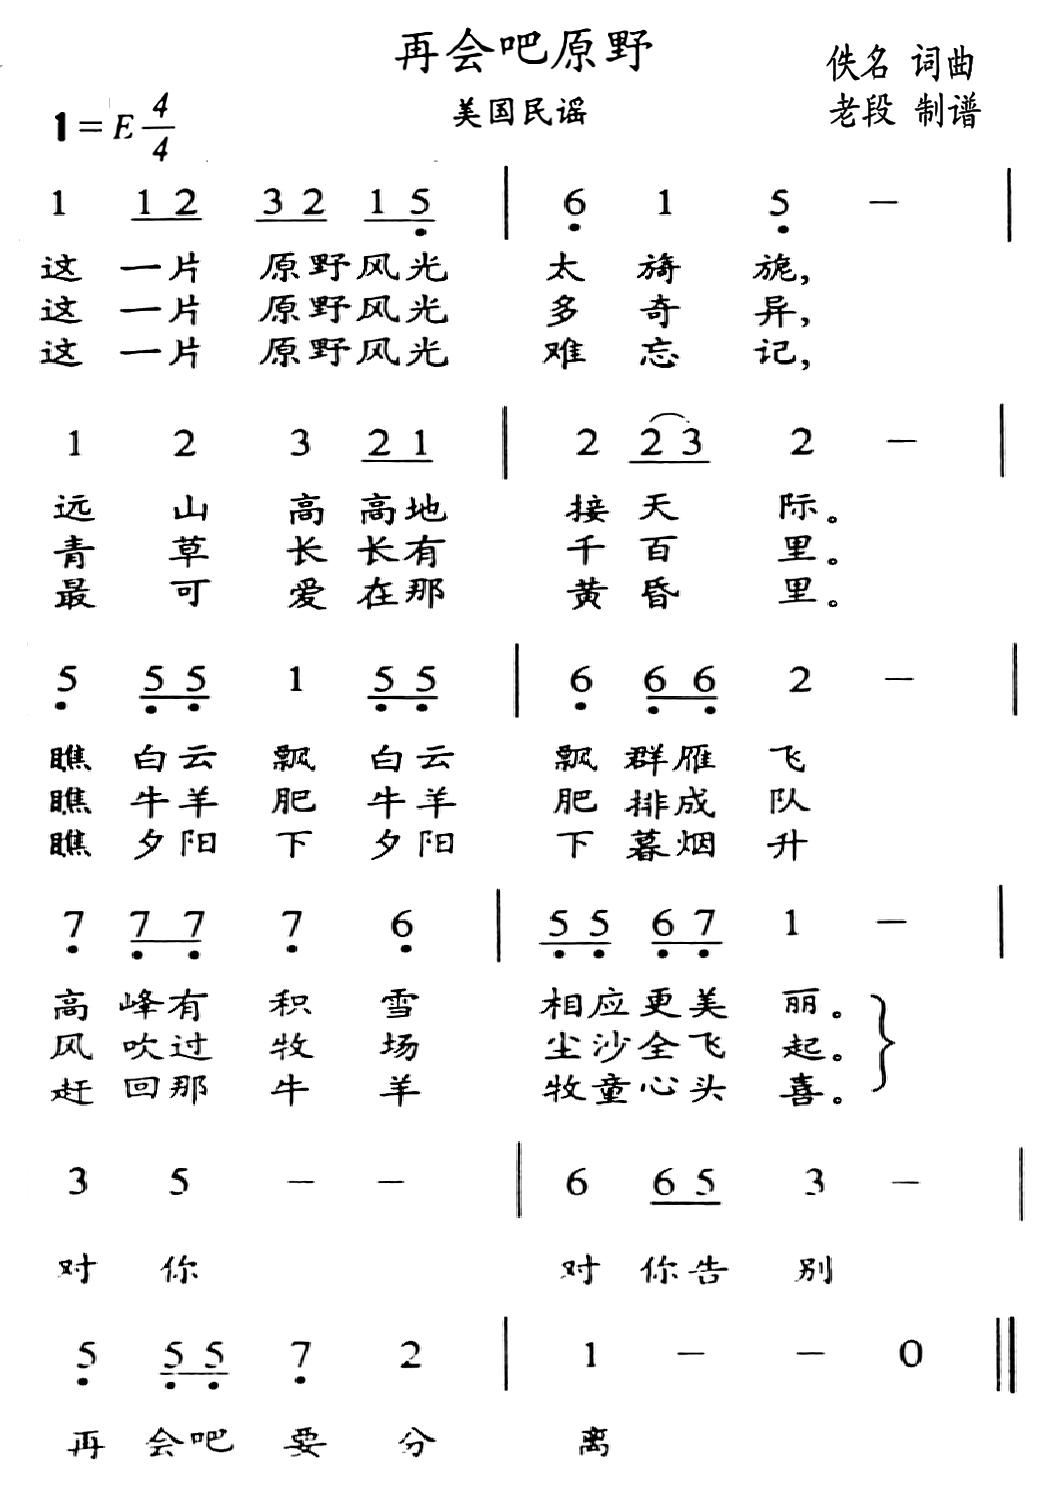 再会吧原野
佚名 词曲
美国民谣
老段 制谱
1=E 4/4
1 1 2 3 2 1 5 | 6 1 5 - |
这 一片 原野风光 太 旖 旎,
这 一片 原野风光 多 奇 异,
这 一片 原野风光 难 忘 记,
1 2 3 2 1 | 2 2 3 2 - |
远 山 高 高地 接 天 际。
青 草 长 长有 千 百 里。
最 可 爱 在那 黄 昏 里。
5 5 5 1 5 5 | 6 6 6 2 - |
瞧 白云 飘 白云 飘 群雁 飞
瞧 牛羊 肥 牛羊 肥 排成 队
瞧 夕阳 下 夕阳 下 暮烟 升
7 7 7 7 6 | 5 5 6 7 1 - |
高 峰有 积 雪 相应更美 丽。
风 吹过 牧 场 尘沙全飞 起。
赶 回那 牛 羊 牧童心头 喜。
3 5 - - | 6 6 5 3 - |
对 你 对 你告 别
5 5 5 7 2 | 1 - - 0 ||
再 会吧 要 分 离